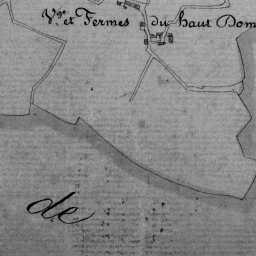 V.ge et Fermes du haut Dom
de